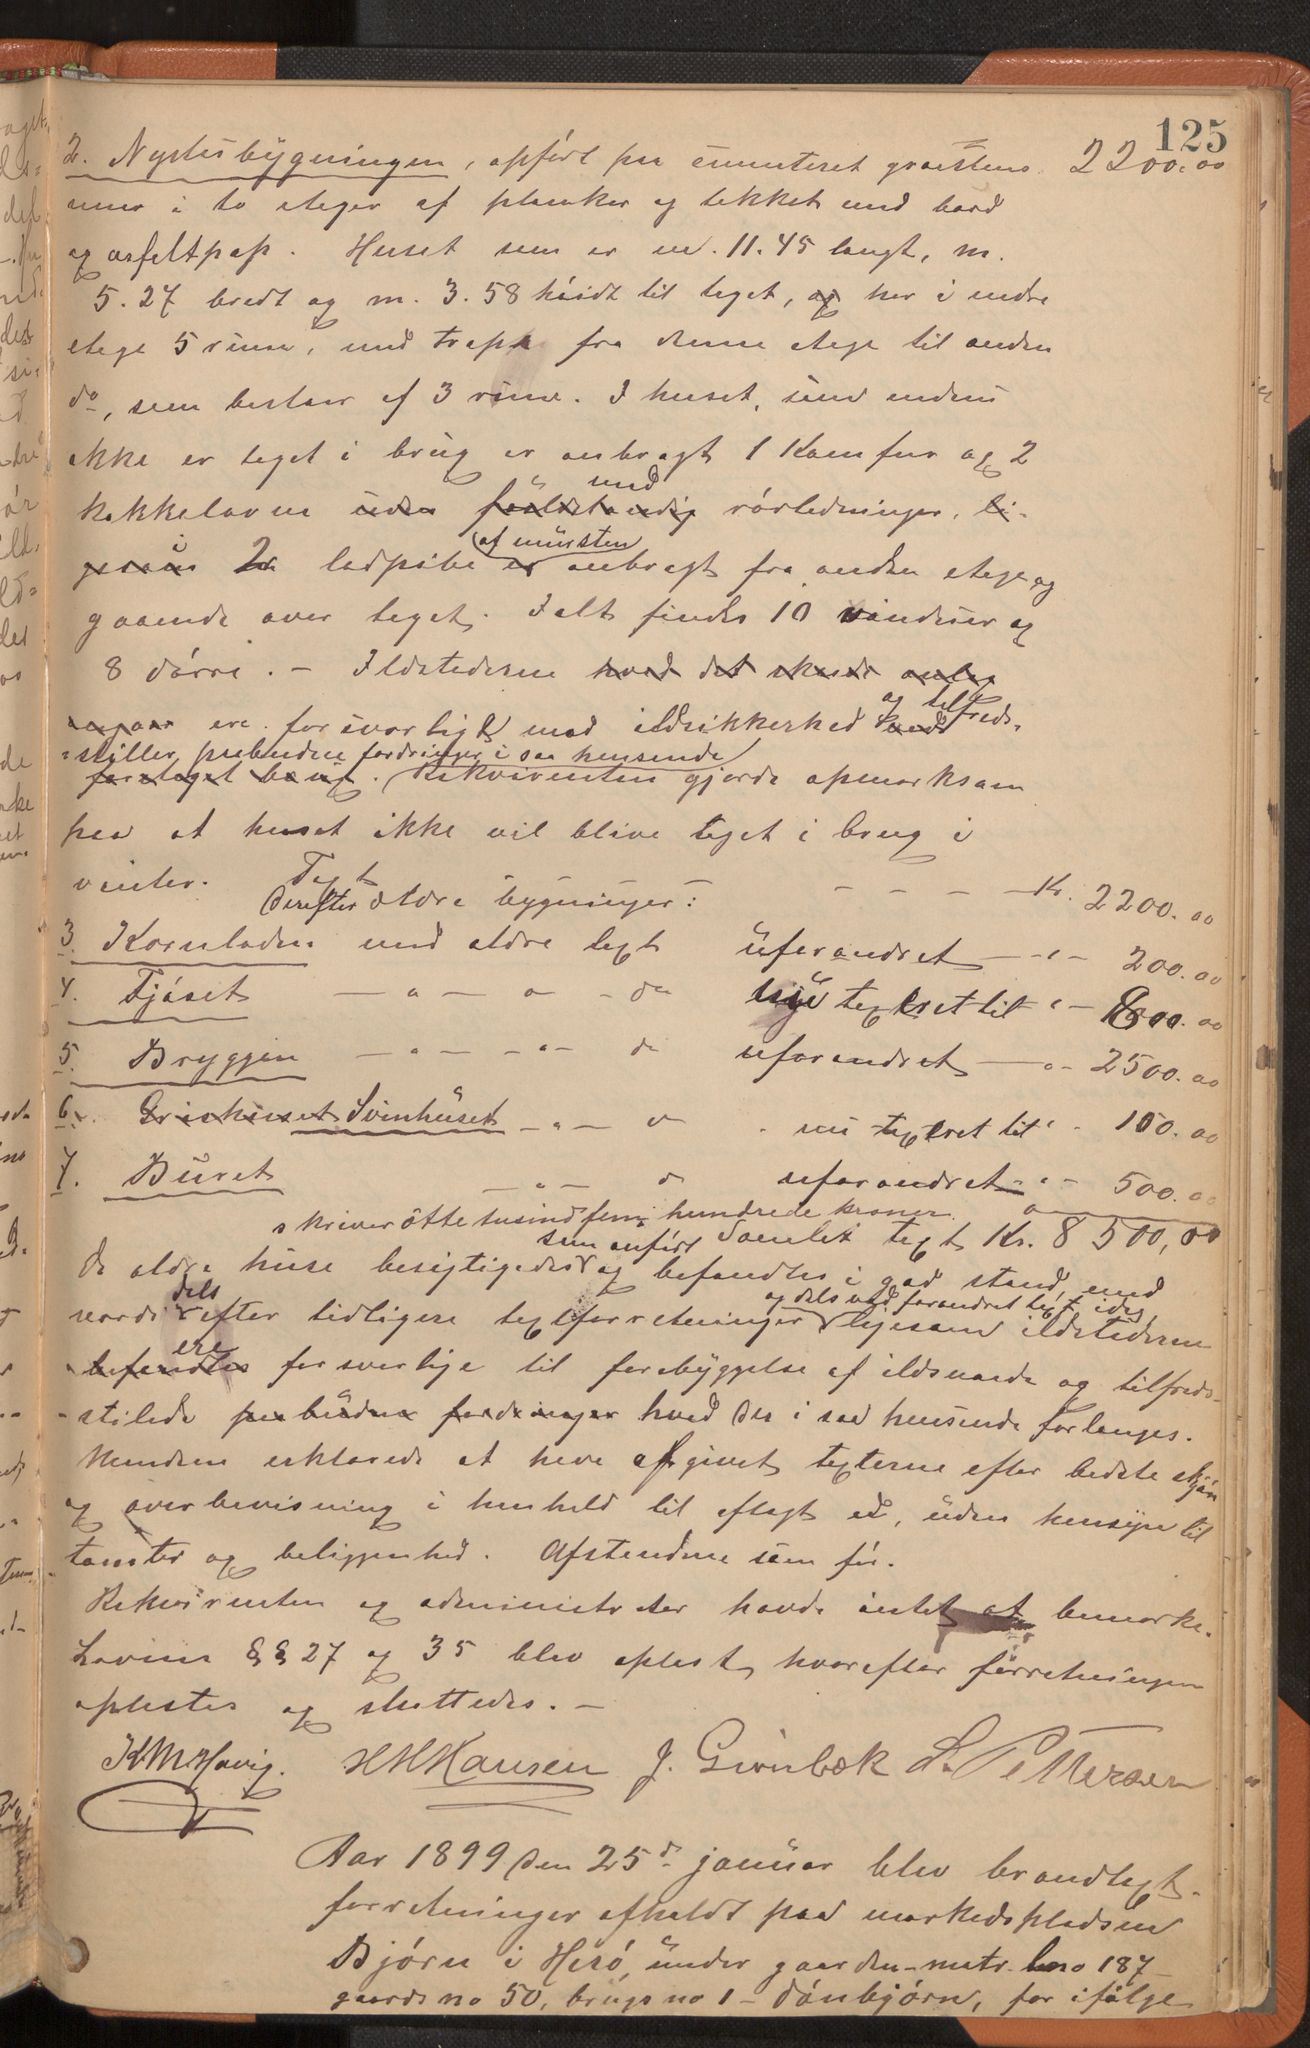 125
2. Nystusbygningen, opført paa cementeret graastens- 2200.00
mur i to etager af planker og tekket med bord
og asfeltpap. Huset som er m. 11.45 langt, m.
5.27 bredt og m. 3.58 høidt til taget, og har i nedre
etage 5 rum, med trapp fra denne etage til anden
do, som bestaar af 3 rum. I huset, som endnu
ikke er taget i brug er anbragt 1 Komfur og 2
med
kakkelovne uden fuldstændig rørledninger. li-
i af mursten
gesaa 2 ladpibe er anbragt fra anden etage og
gaaende over taget. Ialt findes 10 vinduer og
8 dørre. – Ildstederne hvad det skeede anlæg
og tilfreds-
angaar ere forsvarligt med ildsikkerhed
=stiller paabudne fordringer i saa henseende
foretaget brug. Rekvirenten gjorde opmerksom
paa at huset ikke vil blive taget i brug i
vinter. Taxt – – – – Kr. 2200.00
Derefter ældre bygninger:
3. Kornladen med ældre taxt uforandret – " – 200.00
4. Fjøset – " – " – do nu taxeret til " – 800.00
5. Bryggen – " – " – do uforandret – " – 2500.00
6. Grishuset Svinhuset – " – do nu taxeret til " 100.00
7. Buret – " – do uforandret – " – 500.00
skriver otte tusind fem hundrede kroner Samlet taxt Kr. 8500,00
som anført
De ældre huse besigtigedes og befandtes i god stand, med
dels og dels ved forandret taxt idag
værdi efter tidligere taxtforretninger ligesom ildstederne
ere
befandtes forsvarlige til forebyggelse af ildsvaade og tilfreds-
-stilede paabudne fordringer hvad der i saa henseende forlanges.
Mændene erklærede at have afgivet taxterne efter bedste skjøn
og overbevisning i henhold til aflagt ed, uden hensyn til
tomter og beliggenhed. Afstandene som før.
Rekvirenten og administrator havde intet at bemærke.
Lovens §§ 27 og 35 blev oplæst, hvorefter forretningen
oplæstes og sluttedes. –
K M Havig. H H Hansen J. Grønbæk L. Pettersen
Aar 1899 den 25d januar blev brandtaxt-
forretninger afholdt paa markedspladsen
Bjørn i Herø, under gaarden matr. lno 187
gaards no 50, brugs no 1 – Dønbjørn, for ifølge